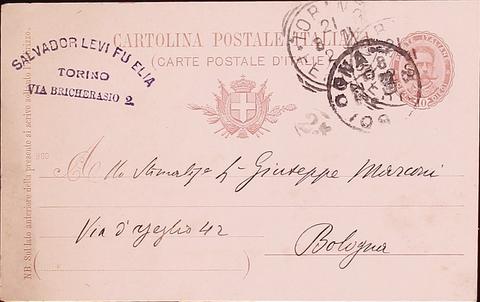 SALVADOR LEVI FU ELIA
TORINO
VIA BRICHERASIO 2.
CARTOLINA POSTALE ITALIANA
(CARTE POSTALE D'ITALIE)
TORINO
21
BOLOGNA
Giuseppe Marconi
Via d'Azeglio 42
Bologna
NB. Sul lato anteriore della presente si scrive soltanto l'indirizzo.